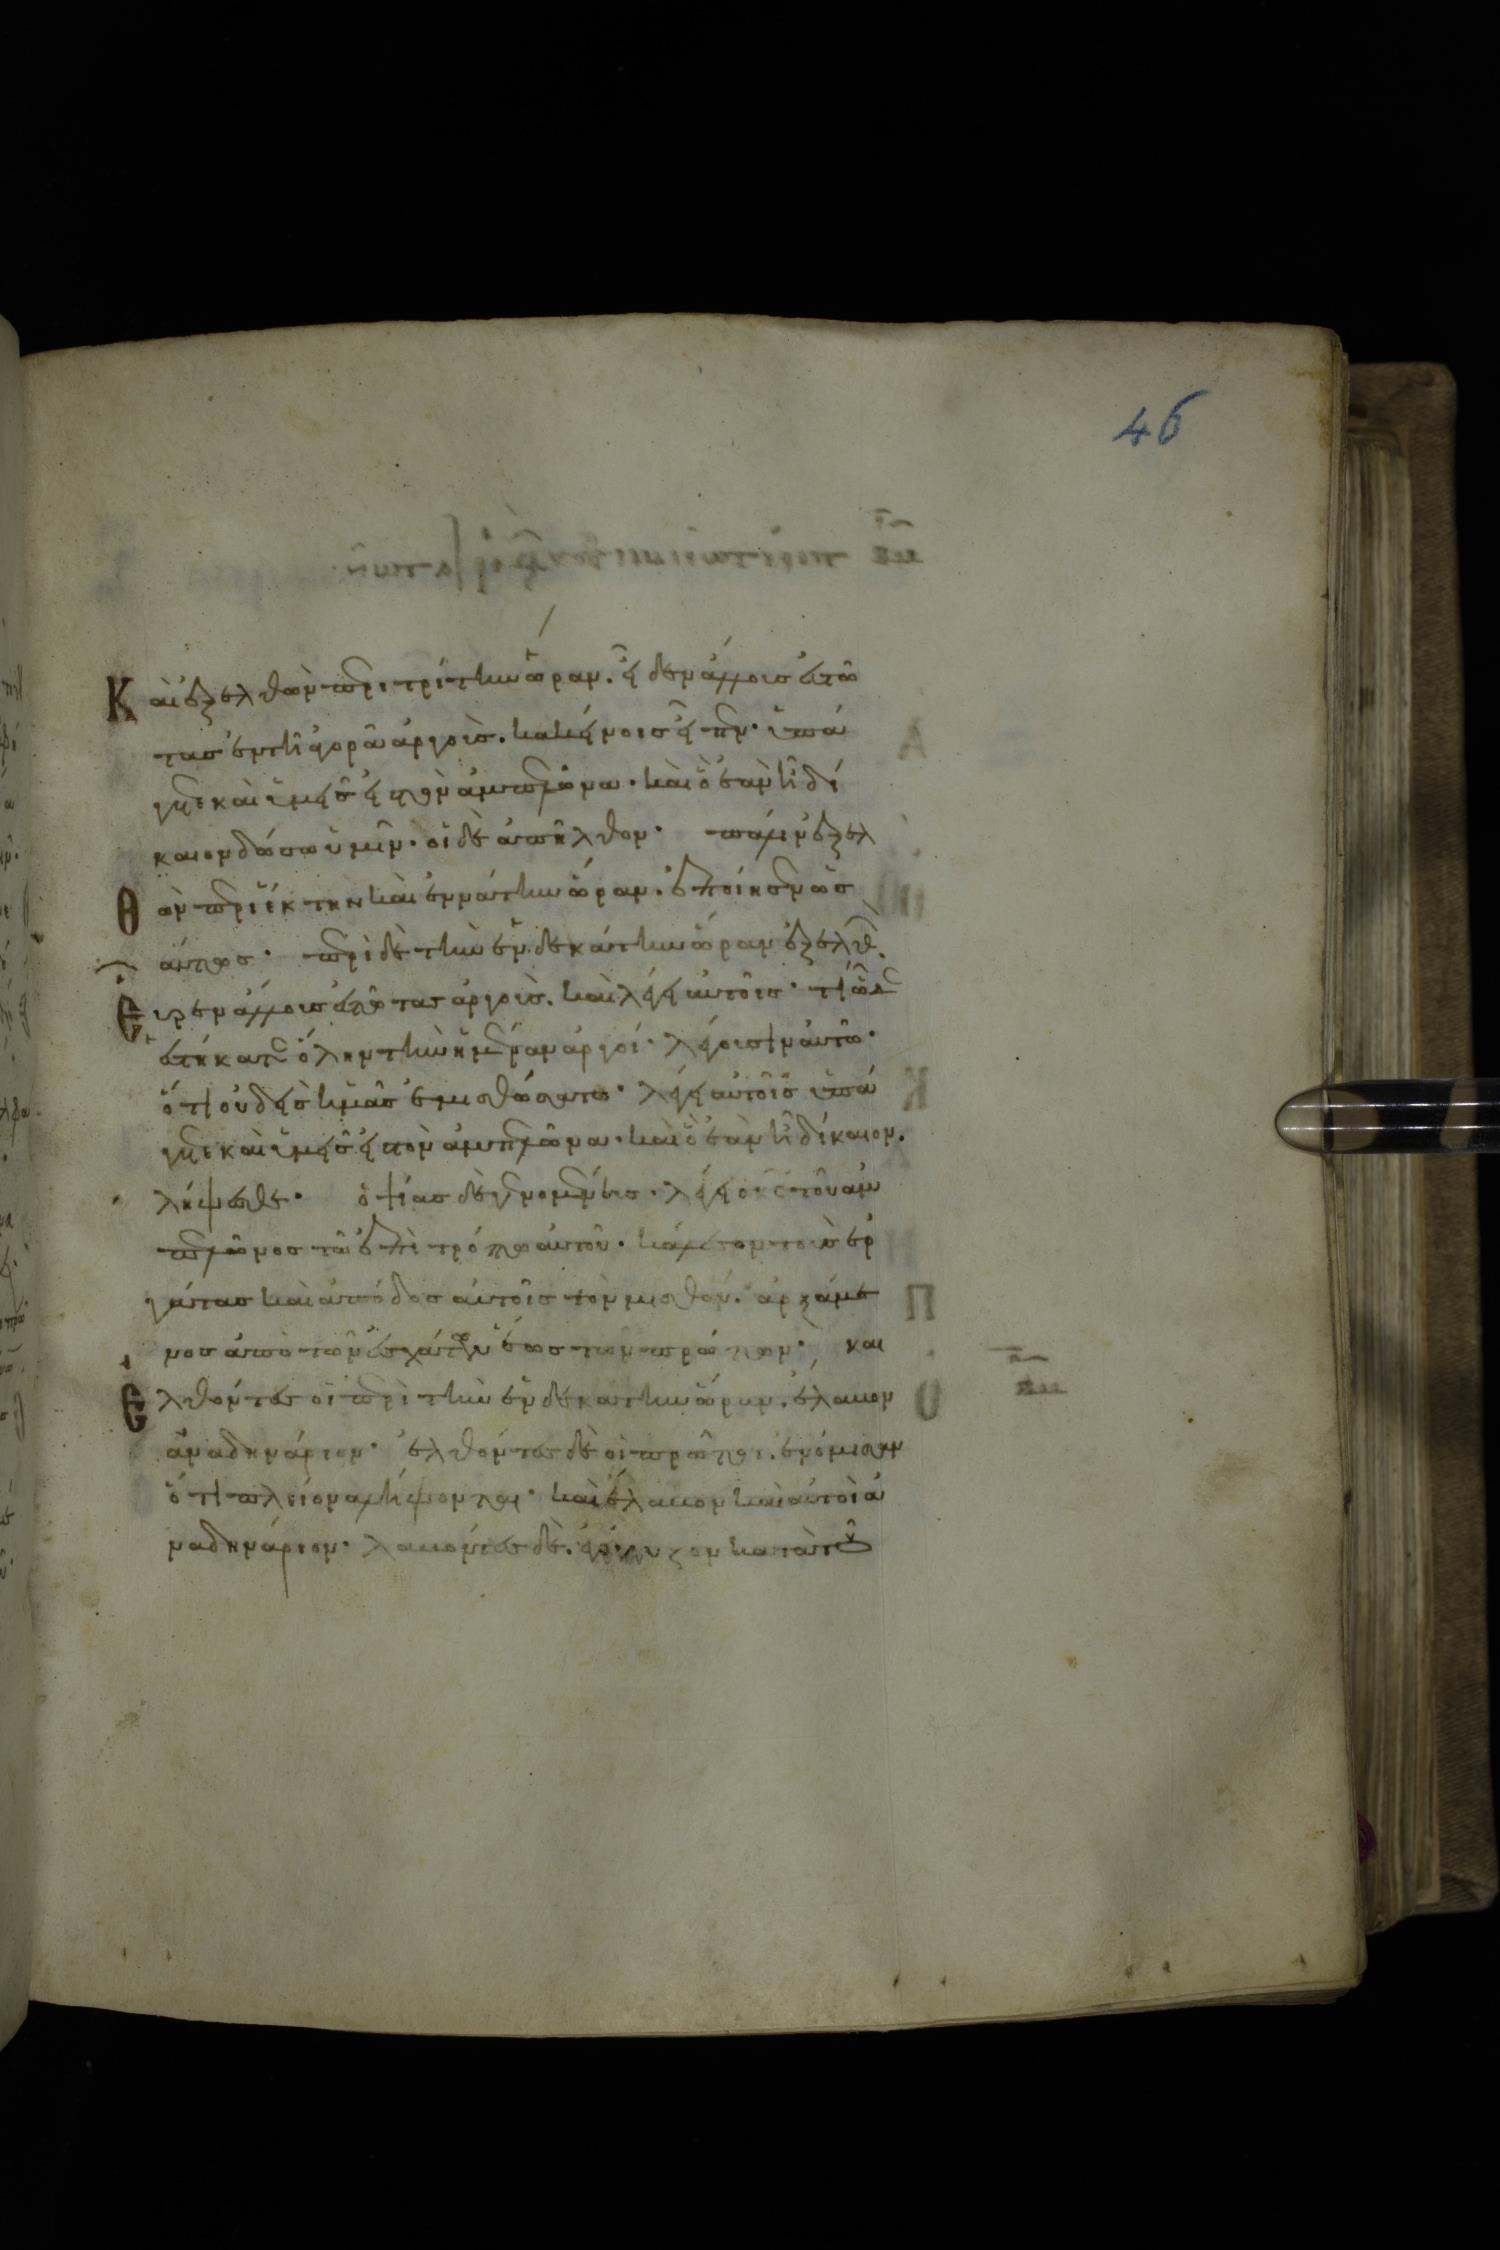 46
Καὶ ἐξελθὼν περι τρίτην ὥραν. εἶδεν ἄλλους ἑστῶ
τας ἐν τῆ ἀγορᾶ ἀργοὺς. κακείνοις εἶπεν· ὑπά
γετε καὶ ὑμεῖς εἰς τὸν ἀμπελῶνα· καὶ ὃ ἐὰν ῆ δί
καιον δώσω ὑμῖν· οἱ δὲ ἀπῆλθον· πάλιν ἐξελ
Θὼν περὶ ἕκτην καὶ ἐννάτην ὥραν. ἐποίησεν ὡσ
αύτως· περὶ δὲ τὴν ἑνδεκάτην ὥραν ἐξελθ.
Εὑρεν ἄλλους ἑστῶτας ἀργοὺς. καὶ λέγει αὐτοῖς· τί ὧδε
ἑστήκατε ὅλην τὴν ἡμέραν ἀργοί· λέγουσιν αὐτῶ·
ὅτι οὐδεὶς ἡμᾶς ἐμισθώσατο· λέγει αὐτοῖς ὑπά
γετε καὶ ὑμεῖς εἰς τὸν ἀμπελῶνα· καὶ ὃ ἐὰν ῆ δίκαιον.
λήψεσθε· ὀψίας δὲ γενομένης. λέγει ὁ κς τοῦ ἀμ
πελῶνος τῶ ἐπιτρόπω αὐτοῦ· κάλεσον τοὺς ἐρ
γάτας καὶ ἀπόδος αὐτοῖς τὸν μισθόν. ἀρξάμε
νος ἀπὸ τῶν ἐσχάτων ἕως τῶν πρώτων· και
Ελθόντες οἱ περὶ τὴν ἑνδεκάτην ὥραν. ἔλαβον
ἀνα δηνάριον· ἐλθόντες δὲ οἱ πρῶτοι. ἐνόμισαν
ὅτι πλείονα λήψονται· καὶ ἔλαβον καὶ αὐτοὶ ἀ
να δηνάριον. λαβόντες δὲ. ἐγόγγυζον κατὰ τοῦ